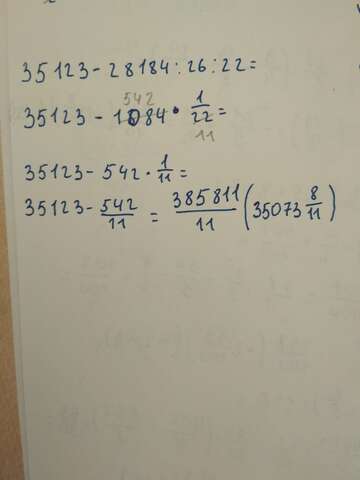 35123-28184:26:22=
542
35123-1084·1/22=
11
35123-542·1/11=
35123-542/11=385811/11(35073 8/11)